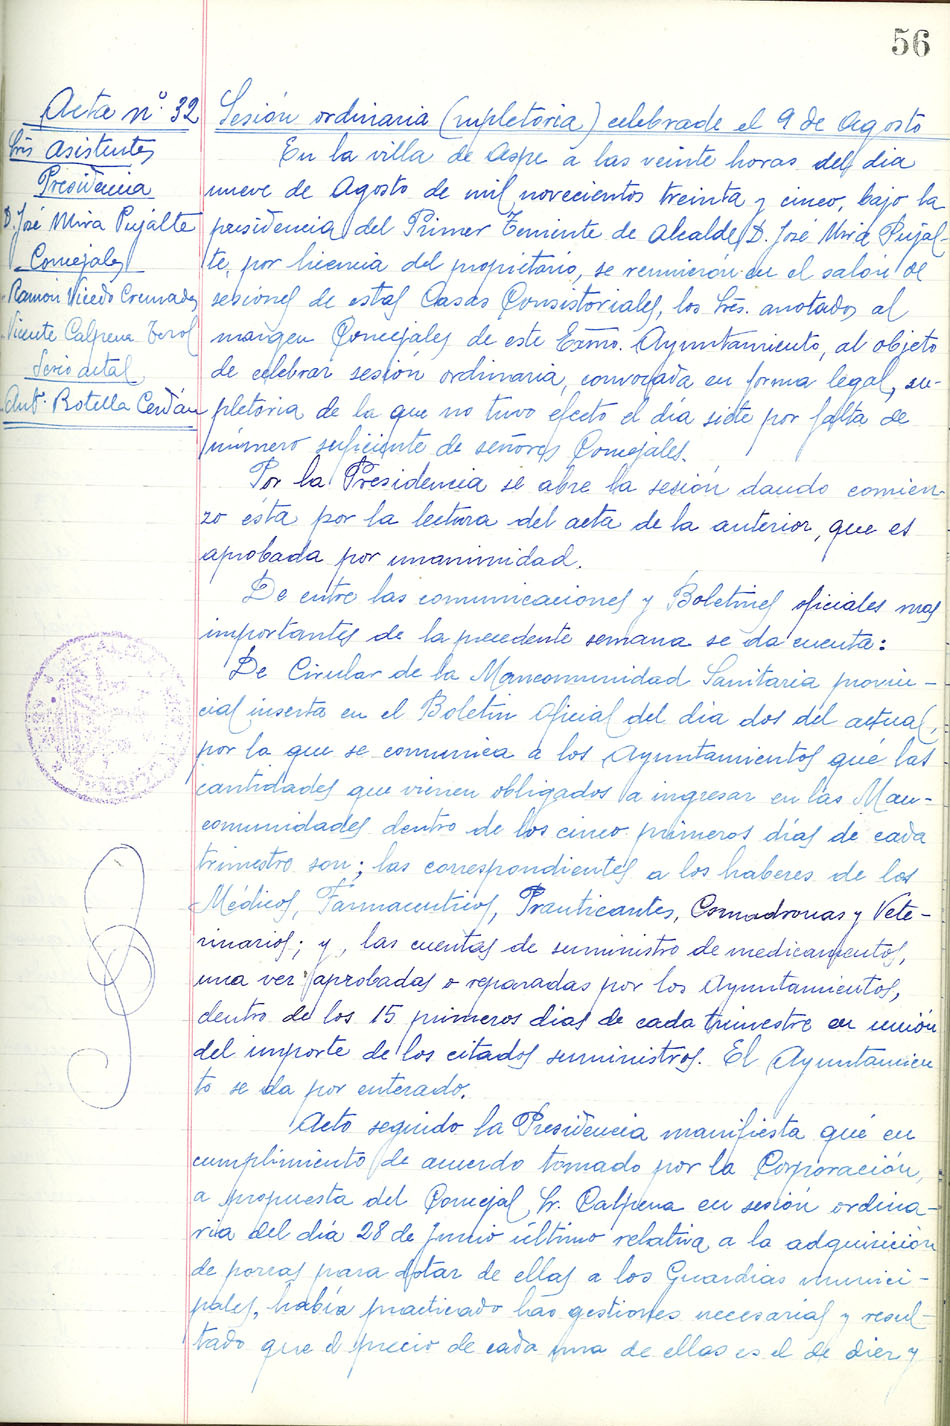 56
Acta nº 32
Srs Asistentes
Presidencia
D. José Mira Pujalte
Concejales
Ramón Vicedo Cremades
Vicente Calpena Terol
Secretario actal
Antº Botella Cerdán
Sesión ordinaria (supletoria) celebrada el 9 de Agosto
En la villa de Aspe a las veinte horas del dia
nueve de Agosto de mil novecientos treinta y cinco, bajo la
presidencia del Primer Teniente de Alcalde D. José Mira Pujal
te, por licencia del propietario, se reunieron en el salon de
sesiones de estas Casas Consistoriales, los Srs. anotados al
margen Concejales de este Exmo. Ayuntamiento, al objeto
de celebrar sesión ordinaria, convocada en forma legal, su-
pletoria de la que no tuvo efecto el día siete por falta de
número suficiente de señores Concejales.
Por la Presidencia se abre la sesión dando comien-
zo ésta por la lectura del acta de la anterior, que es
aprobada por unanimidad.
De entre las comunicaciones y Boletines oficiales mas
importantes de la precedente semana se da cuenta:
De Circular de la Mancomunidad Sanitaria provin-
cial inserta en el Boletin Oficial del dia dos del actual,
por la que se comunica a los Ayuntamientos que las
cantidades que vienen obligados a ingresar en las Man-
comunidades dentro de los cinco primeros días de cada
trimestre son; las correspondientes a los haberes de los
Médicos, Farmaceuticos, Practicantes, Comadronas y Vete-
rinarios; y, las cuentas de suministro de medicamentos,
una vez aprobadas o reparadas por los Ayuntamientos,
dentro de los 15 primeros dias de cada trimestre en unión
del importe de los citados suministros. El Ayuntamien
to se da por enterado.
Acto seguido la Presidencia manifiesta que en
cumplimiento de acuerdo tomado por la Corporación,
a propuesta del Concejal Sr. Calpena en sesión ordina-
ria del día 28 de Junio último relativa a la adquisición
de porras para dotar de ellas a los Guardias munici-
pales, había practicado las gestiones necesarias y resul-
tado que el precio de cada una de ellas es el de diez y